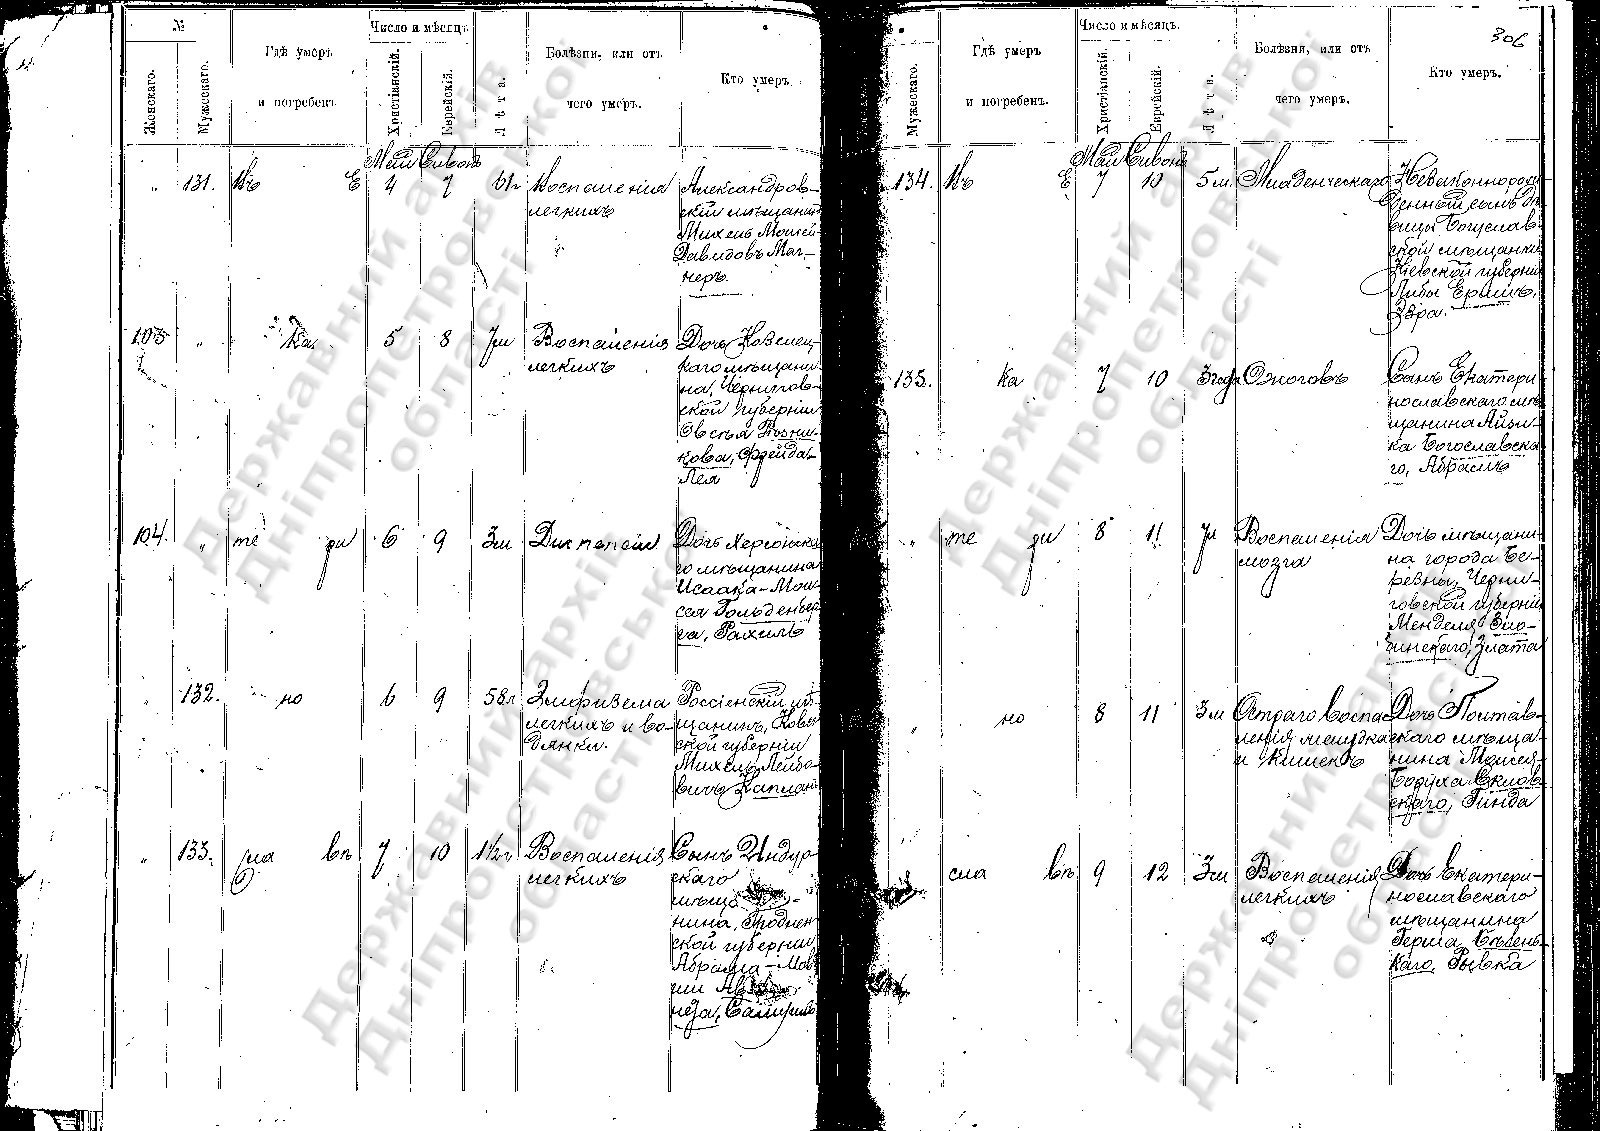 №
Женскаго.
Мужескаго.
Гдѣ умеръ
и погребенъ.
Число и мѣсяцъ.
Христіанскій.
Еврейскій.
Лѣта.
Болѣзни, или отъ
чего умеръ.
Кто умеръ.
Май Сивонъ
" 131. Въ Е 4 7 61г Воспаленія
легкихъ
Александров-
скій мѣщанинъ
Михель Мошей
Давидовъ Маг-
неръ.
103 " Ка 5 8 7м Воспаленія
легкихъ
Дочь Козелец-
каго мѣщани-
на, Чернигов-
ской губерніи
Овсѣя Позни-
кова, Фрейда-
Лея
104. " те ри 6 9 3м Диспепсіи
Дочь Херсонска-
го мѣщанина
Исаака-Мои-
сея Гольденбер-
га, Рахиль
" 132. но 6 9 58л Эмфизема
легкихъ и во-
дянки.
Россіенскій мѣ-
щанинъ, Ковен
ской губерніи
Михель Лейбо-
вичъ Капланъ
" 133. сла въ 7 10 1½г Воспаленія
легкихъ
Сынъ Индур-
скаго
мѣща-
нина, Гроднен
ской губерніи
Абрама-Мов
ши
Самуилъ
306
Мужескаго.
Гдѣ умеръ
и погребенъ.
Число и мѣсяцъ.
Христіанскій.
Еврейскій.
Лѣта.
Болѣзни, или отъ
чего умеръ.
Кто умеръ.
Май Сивонъ
134. Въ Е 7 10 5м. Младенческаго
Незаконнорож-
денный сынъ дѣ
вицы Богуслав-
ской мѣщанки
Кіевской губерніи
Либы
135. Ка 7 10 3 года Ожоговъ
Сынъ Екатери-
нославскаго мѣ-
щанина Айзи-
ка Богославска-
го, Абрамъ
" те ри 8 11 7м Воспаленія
мозга
Дочь мѣщани-
на города Бе-
резны, Черни-
говской губерніи
Менделя
Злата
" но 8 11 3м Остраго воспа-
ленія желудка
и кишекъ
Дочь Полтав-
скаго мѣща-
нина Моисея-
Боруха Склов-
скаго, Гинда
сла въ 9 12 3м Воспаленія
легкихъ
Дочь Екатери-
нославскаго
мѣщанина
Герша Бѣлень-
каго, Рывка
Державний архів
Дніпропетровської
області
Державний архів
Дніпропетровської
області
Державний архів
Дніпропетровської
області
Державний архів
Дніпропетровської
області